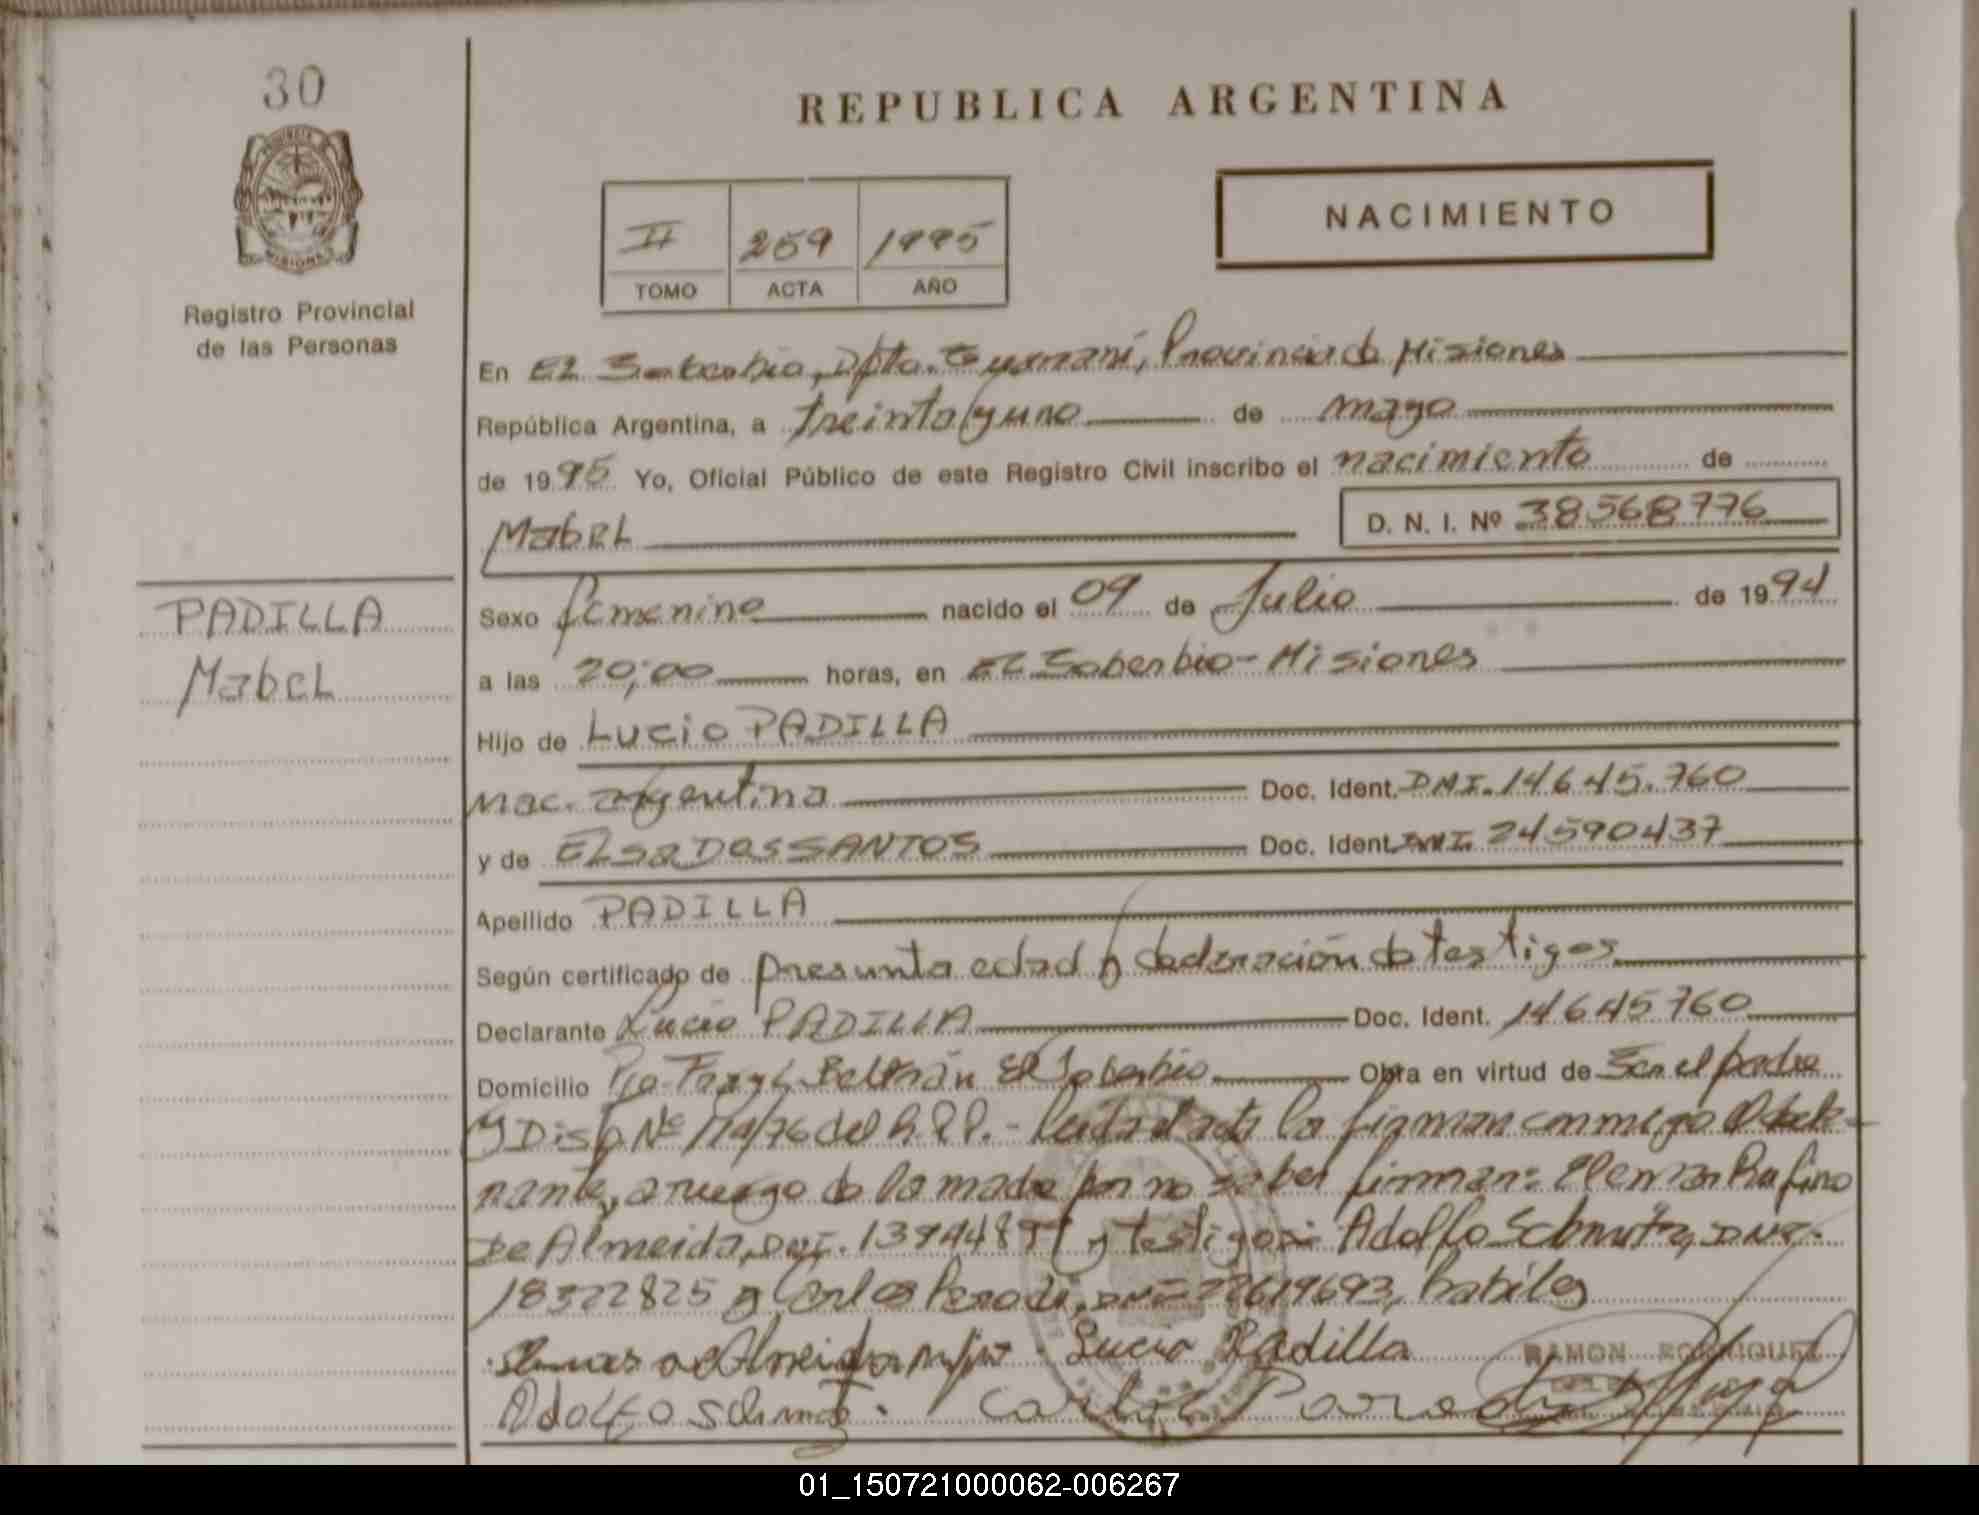 30
Registro Provincial
de las Personas
PADILLA
Mabel
REPUBLICA ARGENTINA
II 259 1995
TOMO ACTA AÑO
NACIMIENTO
En El Soberbio, Dpto. Guaraní, Provincia de Misiones
República Argentina, a treinta y uno de mayo
de 1995 Yo, Oficial Público de este Registro Civil inscribo el nacimiento de
Mabel D. N. I. Nº 38568776
Sexo femenino nacido el 09 de Julio de 1994
a las 20,00 horas, en El Soberbio - Misiones
Hijo de Lucio PADILLA
Nac. argentina Doc. Ident. DNI. 14.645.760
y de Elsa DOS SANTOS Doc. Ident. DNI. 24590437
Apellido PADILLA
Según certificado de presunta edad y declaración de testigos
Declarante Lucio PADILLA Doc. Ident. 14645760
Domicilio Fray L. Beltrán El Soberbio Obra en virtud de Ser el padre
y Disp. Nº 174/76 del R.P.P. - Leida el acta la firman conmigo el decla-
rante, a ruego de la madre por no saber firmar: Rufino
De Almeida, DNI. y testigos: Adolfo Schmitz, DNI.
18322825 y Carlos Parodi, DNI 22619693, habiles
Lucio Padilla
RAMON RODRIGUEZ
Adolfo Schmitz. Carlos Parodi
01_150721000062-006267